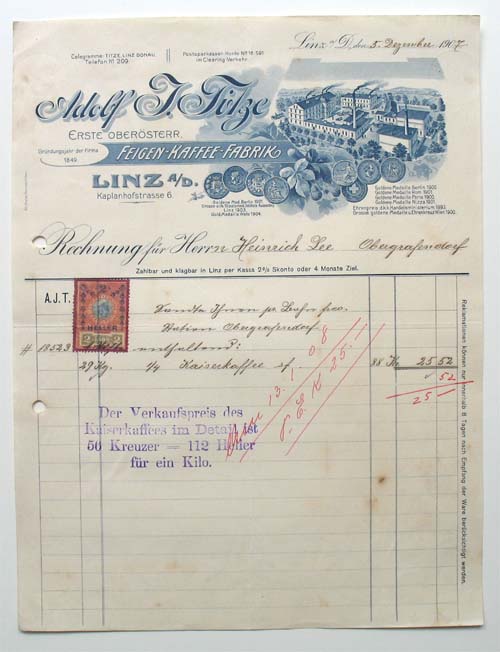 Telegramme: TITZE, LINZ DONAU.
Telefon № 209
Postsparkassen-Konto № 16.591
im Clearing Verkehr.
Linz a/D., den 5. Dezember 1907
Adolf J. Titze
ERSTE OBERÖSTERR.
Gründungsjahr der Firma
1849.
FEIGEN-KAFFEE-FABRIK
LINZ A/D.
Kaplanhofstrasse 6.
Goldene Med. Berlin 1901.
Linz 1903.
Gold. Medaille Wels 1904.
Goldene Medaille Berlin 1900.
Goldene Medaille Rom 1901.
Goldene Medaille Paris 1900.
Goldene Medaille Nizza 1901.
Ehrenpreis d. k.k. Handelsministerium 1893.
Grosse goldene Medaille u. Ehrenkreuz Wien 1900.
Rechnung für Herrn Heinrich Lee Obergrafendorf
Zahlbar und klagbar in Linz per Kassa 2% Skonto oder 4 Monate Ziel.
A.J.T.
2
HELLER
2 2
Sandte Ihnen pr. Bahn fco.
Station Obergrafendorf
# 18523 enthaltend:
29 Kg. 1/4 Kaiserkaffee sf 88 K 25 52
52
25 —
13.1.08
K 25.—
Der Verkaufspreis des
Kaiserkaffees im Detail ist
56 Kreuzer = 112 Heller
für ein Kilo.
Reklamationen können nur innerhalb 8 Tagen nach Empfang der Ware berücksichtigt werden.